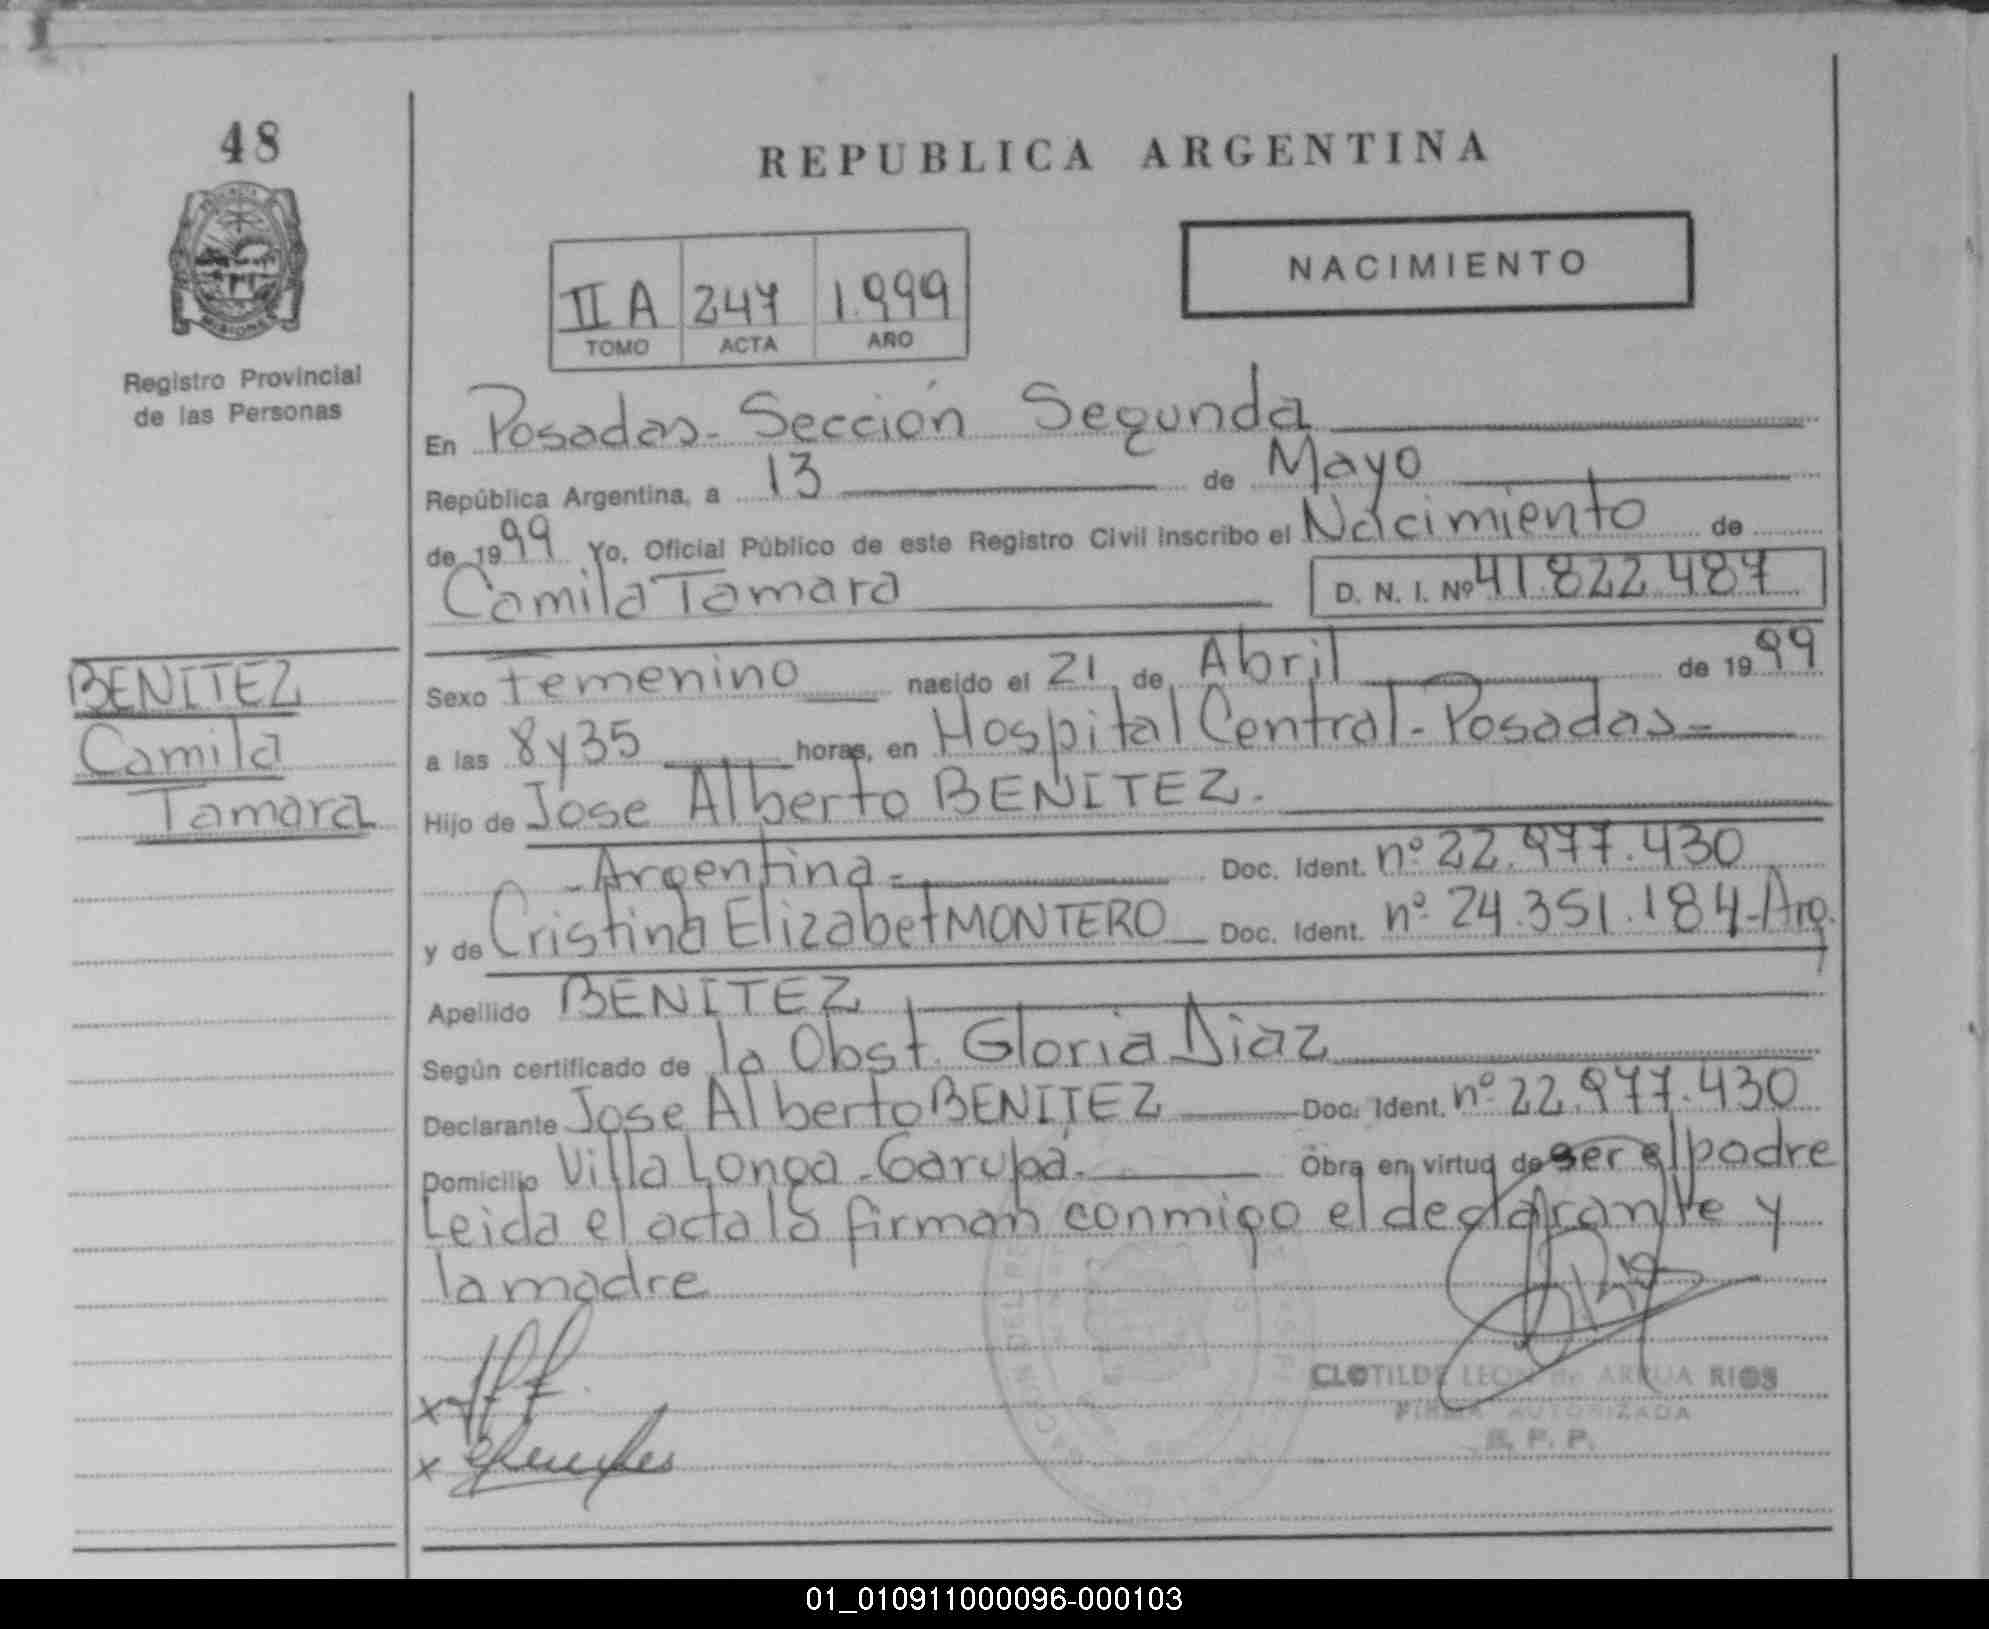 48
REPUBLICA ARGENTINA
MISIONES
Registro Provincial
de las Personas
NACIMIENTO
II A 247 1.999
TOMO ACTA AÑO
En Posadas - Sección Segunda
República Argentina, a 13 de Mayo
de 1999 Yo, Oficial Público de este Registro Civil inscribo el Nacimiento de
Camila Tamara D. N. I. Nº 41.822.487
BENITEZ
Camila
Tamara
Sexo Femenino nacido el 21 de Abril de 1999
a las 8 y 35 horas, en Hospital Central - Posadas -
Hijo de Jose Alberto BENITEZ.
- Argentina - Doc. Ident. nº 22.977.430
y de Cristina Elizabet MONTERO Doc. Ident. nº 24.351.184 - Arg.
Apellido BENITEZ
Según certificado de la Obst. Gloria Diaz
Declarante Jose Alberto BENITEZ Doc. Ident. nº 22.977.430
Domicilio Villa Longa - Garupá. Obra en virtud de ser el padre
Leida el acta la firman conmigo el declarante y
la madre
x
x
CLOTILDE LEON de ARRUA RIOS
FIRMA AUTORIZADA
R. P. P.
01_010911000096-000103